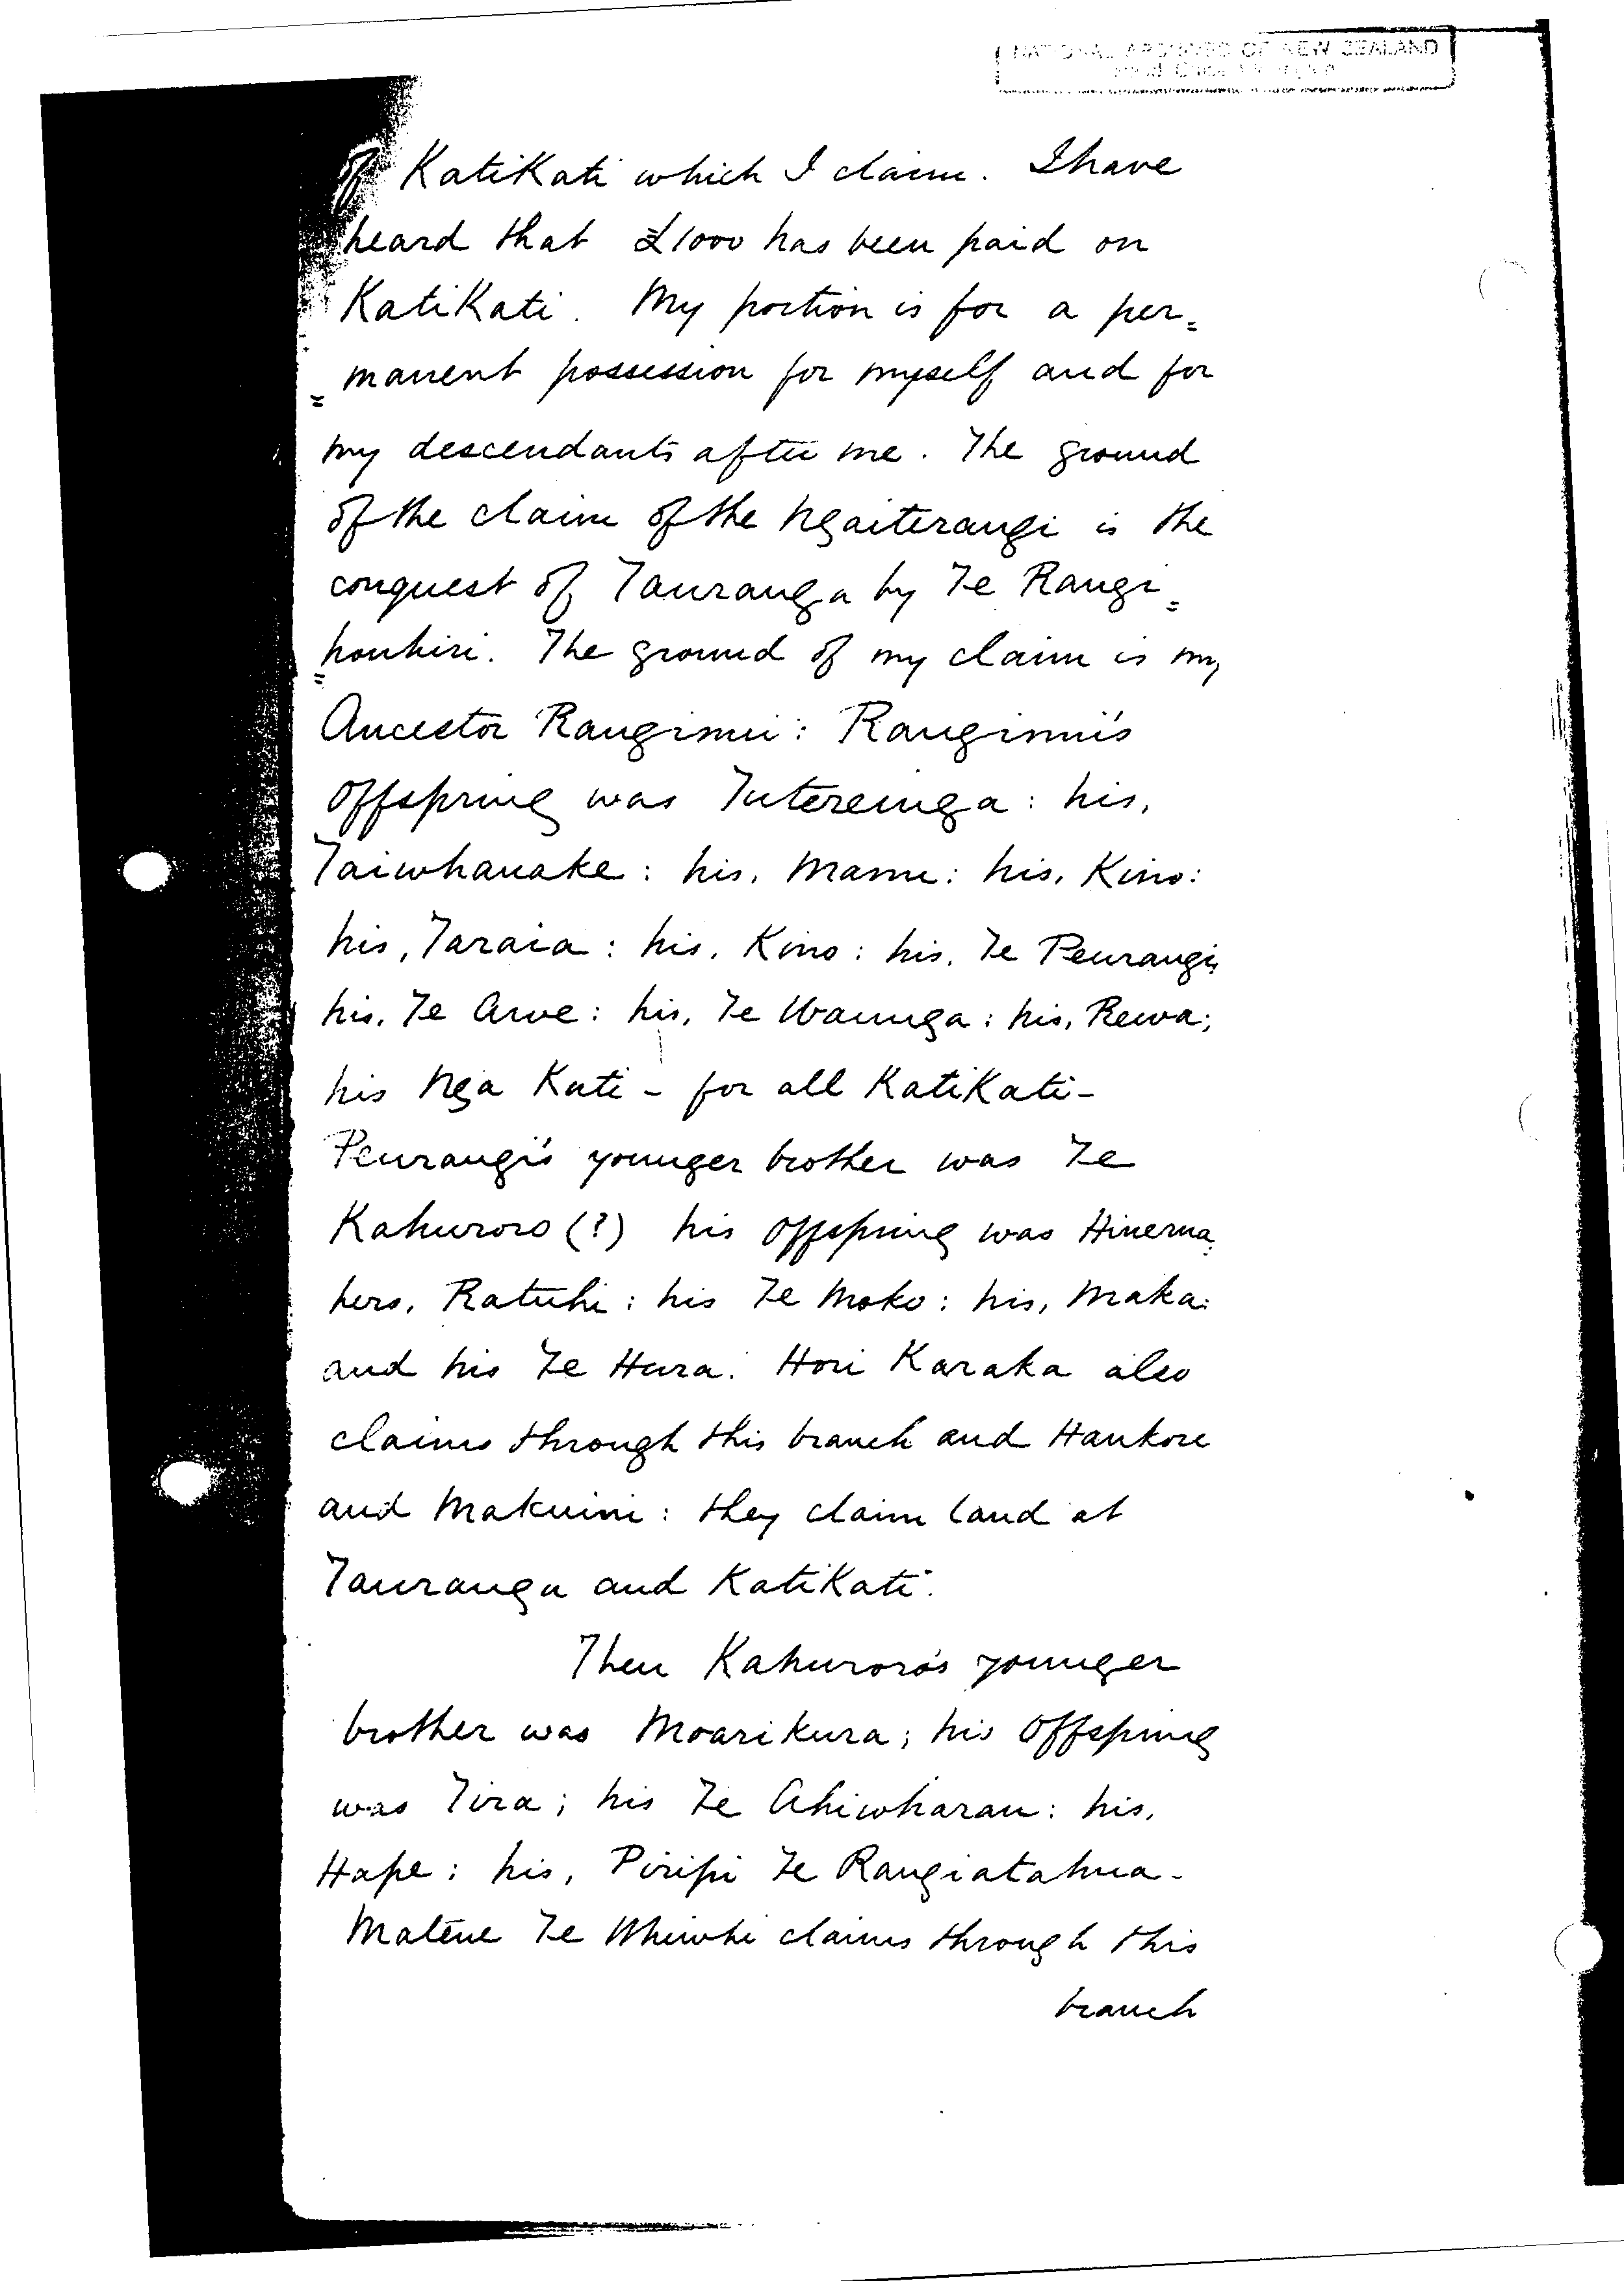 NATIONAL ARCHIVES OF NEW ZEALAND
of KatiKati which I claim. I have
heard that £1000 has been paid on
KatiKati. My portion is for a per=
=manent possession for myself and for
my descendants after me. The ground
of the claim of the Ngaiterangi is the
conquest of Tauranga by Te Rangi=
=houhiri. The ground of my claim is my
Ancestor Ranginui: Ranginui's
Offspring was Tutereinga: his,
Taiwhanake: his, Mamu: his, Kino:
his, Taraia: his, Kino: his, Te Peurangi;
his, Te Awe: his, Te Waunga: his, Rewa;
his Nga Kati - for all KatiKati -
Peurangi's younger brother was Te
Kahuroro (?) his offspring was Hinerua,
hers, Ratuhi: his Te Moko: his, Maka:
and his Te Hura. Hori Karaka also
claims through this branch and Haukore
and Makuini: they claim land at
Tauranga and KatiKati.
Then Kahuroro's younger
brother was Moarikura; his Offspring
was Tira; his Te Ahiwharau: his,
Hape: his, Piripi Te Rangiatahua -
Matene Te Whiwhi claims through this
branch